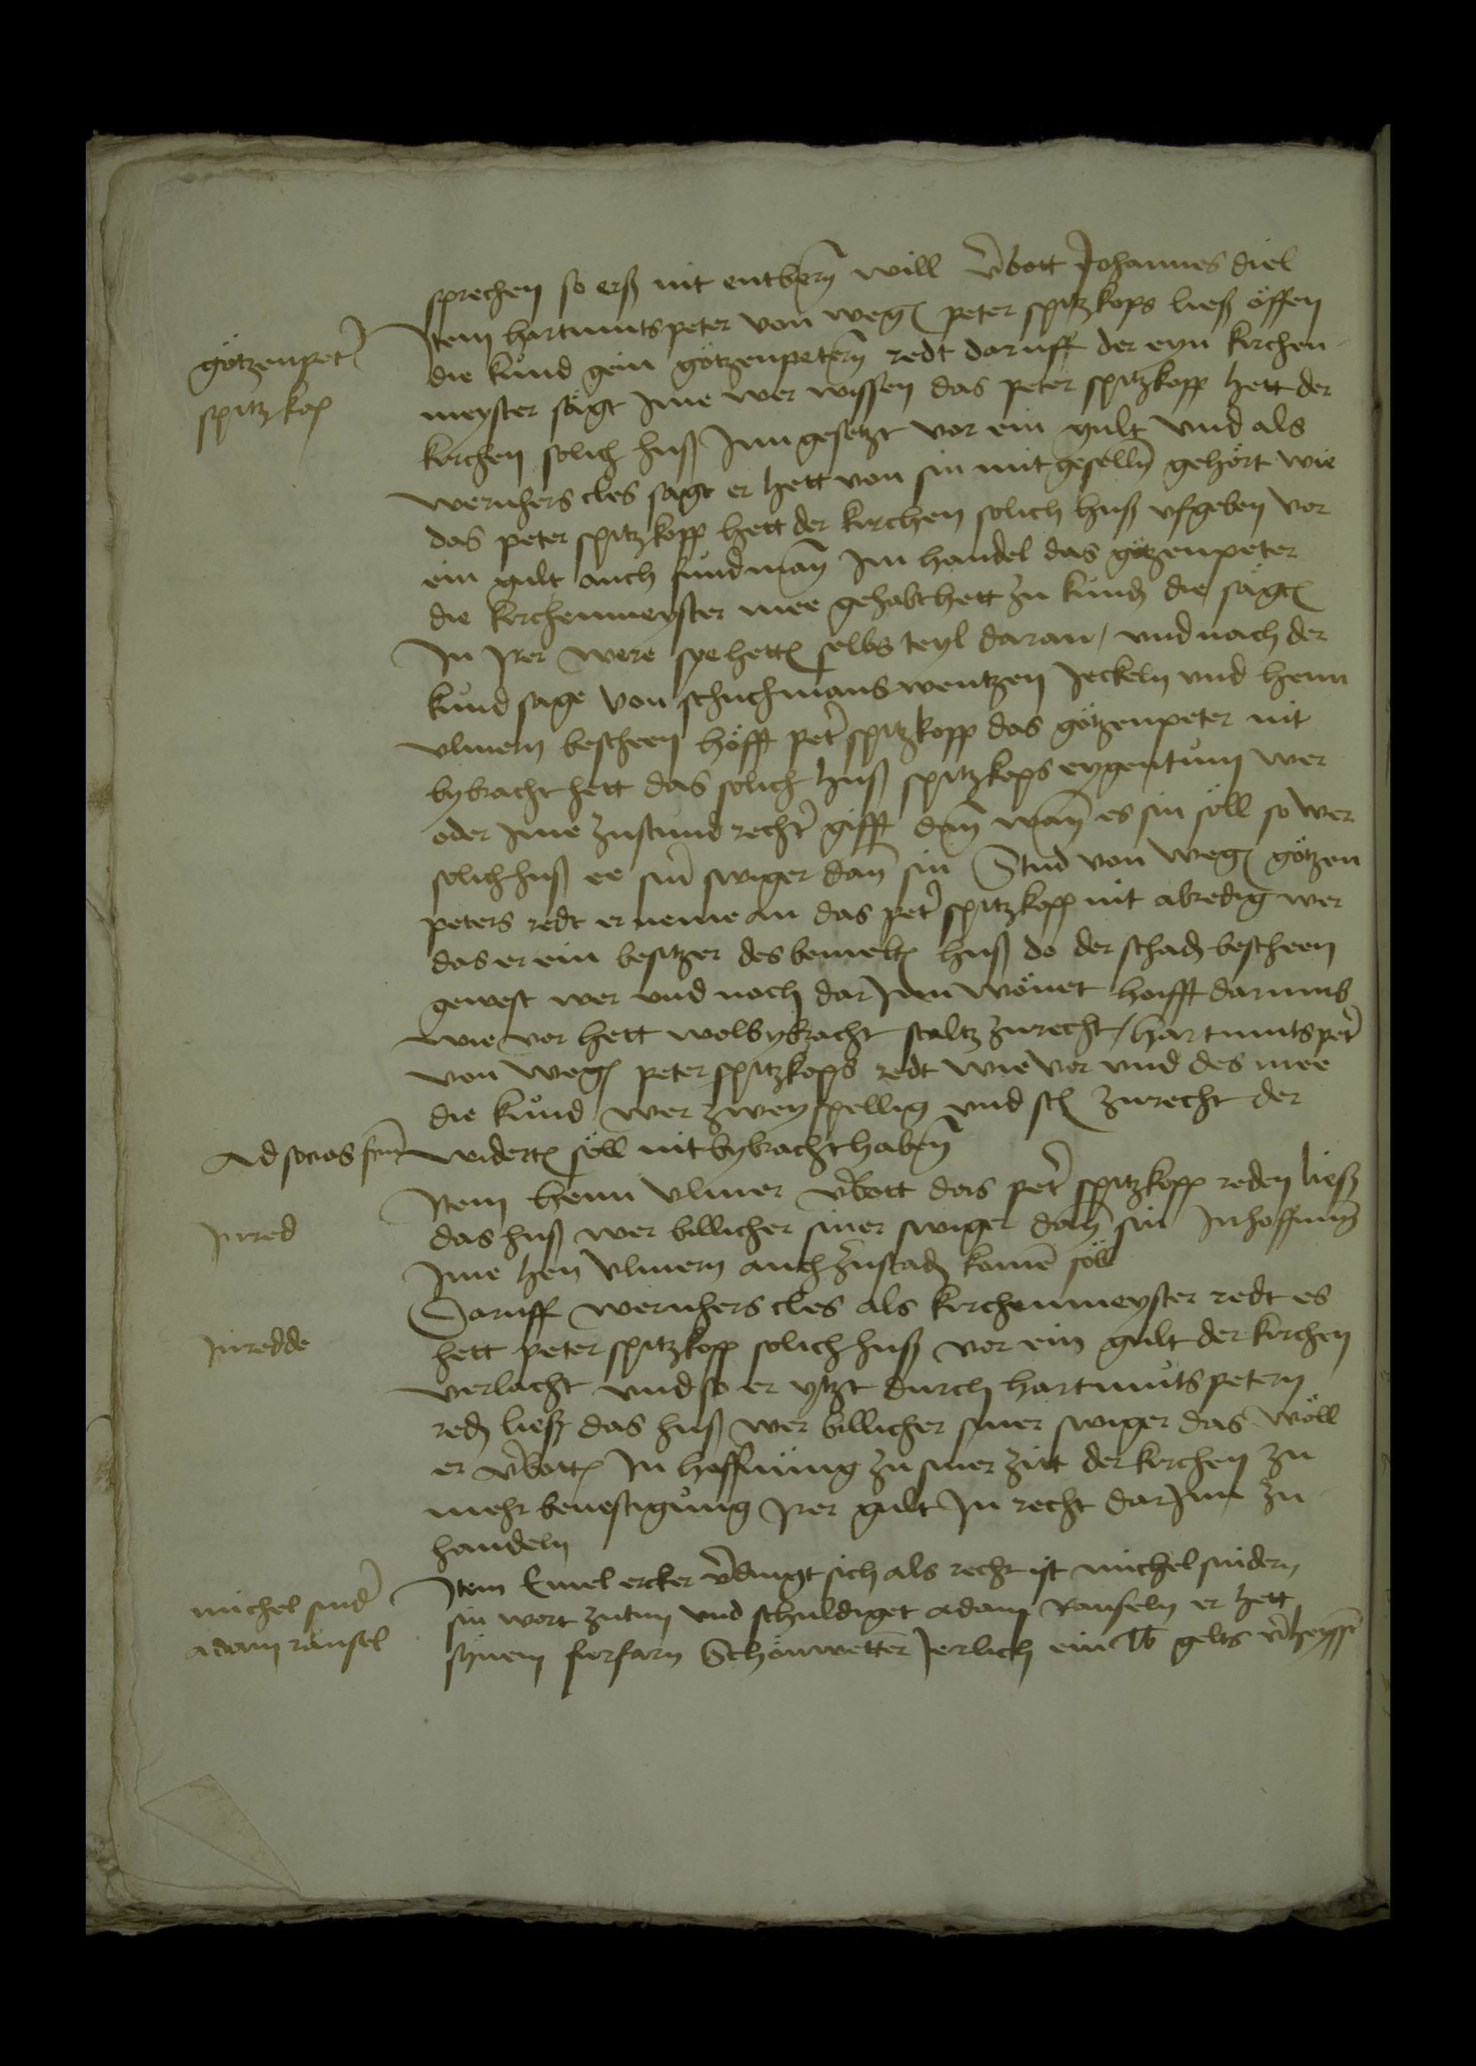 sprechen so erß nit entbern will v̄bott Johannes diel
götzenpet̄
spitzkop
Item hartmuts peter von weg(en) peter spitzkops ließ öffen
die kund gein götzenpetern redt daruff der eyn kirchen-
meyster sagt Ime wer wissen das peter spitzkopp hett der
kirchen solich huß Inngesetzt vor ein gult vnd als
wernhers cles sagt er hett von sin mit geselln gehört wie
das peter spitzkopp hett der kirchen solich huß vfgeben vor
ein gult auch fund man Im handel das götzenpeter
die kirchenmeyster mee gehabt hett zu kund die sagt(en)
In Irer were sye hett(en) selbs teyl daran / vnd nach der
kund sage von schuchmans wentzen Jeckeln vnd henn
vlmern bescheen höfft pet̄ spitzkopp das götzenpeter nit
bybracht hett das solich huß spitzkops eygentum wer
oder Ime zustund rechter gifft dan wan es sin söll so wer
solich huß ee siner swiger dan sin Stud von weg(en) götzen
peters redt er neme an das pet̄ spitzkopp nit abredig wer
das er ein besitzer des bemelt(en) huß do der schad bescheen
gewest wer vnd noch dar Inn wönet hofft darumb
wie vor hett wolbybracht staltz zurecht / hartmuts pet̄
von weg(en) peter spitzkops redt wie vor vnd des mee
die kund wer zweyspellig vnd st(alt) zurecht der
Ad socios
widert(eyl) söll nit bybracht haben
Item Henn vlmer v̄bott das pet̄ spitzkopp reden ließ
Inred
das huß wer billicher siner swiger dan sin In hoffnung
Ime hen vlmern auch zustad komē söll
Daruff wernhers cles als kirchenmeyster redt es
Inredde
hett peter spitzkopp solich huß vor ein gult der kirchen
verlacht vnd so er ytzt durch hartmuts petern
red ließ das huß wer billicher siner swiger das wöll
er v̄bott(en) In hoffnung zu siner zitt der kirchen zu
mehr beuestigung Irer gult In recht dar Inn zu
handeln
Item Emel ercker v̄dingt sich als recht ist michel sndern
michel snid̄
adam ransel
sin wort zutun vnd schuldiget adam Ranseln er hett
synem furfarn Schönwetter Jerlich ein lb gelts v̄heyss̄